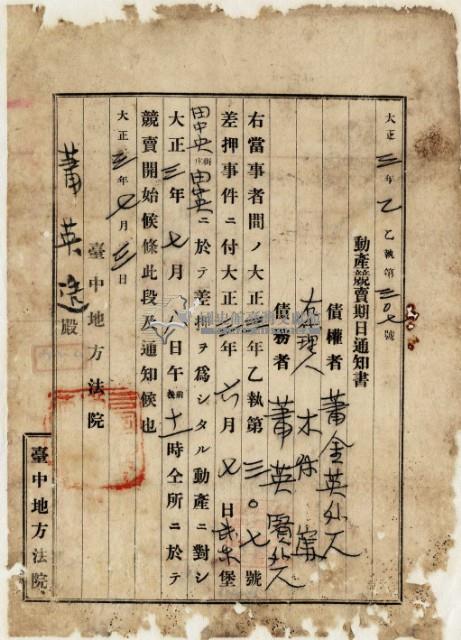 大正三年乙執第三〇七號
動產競賣期日通知書
債權者 蕭金英外一人
右代理人
債務者 蕭英賢外一人
右當事者間ノ大正三年乙執第三〇七號
差押事件ニ付大正三年六月七日武東堡
田中央街庄 ニ於テ差押ヲ為シタル動產ニ對シ
大正三年七月八日午前後十一時仝所ニ於テ
競賣開始候條此段及通知候也
大正三年七月三日
臺中地方法院
蕭英 殿
臺中地方法院